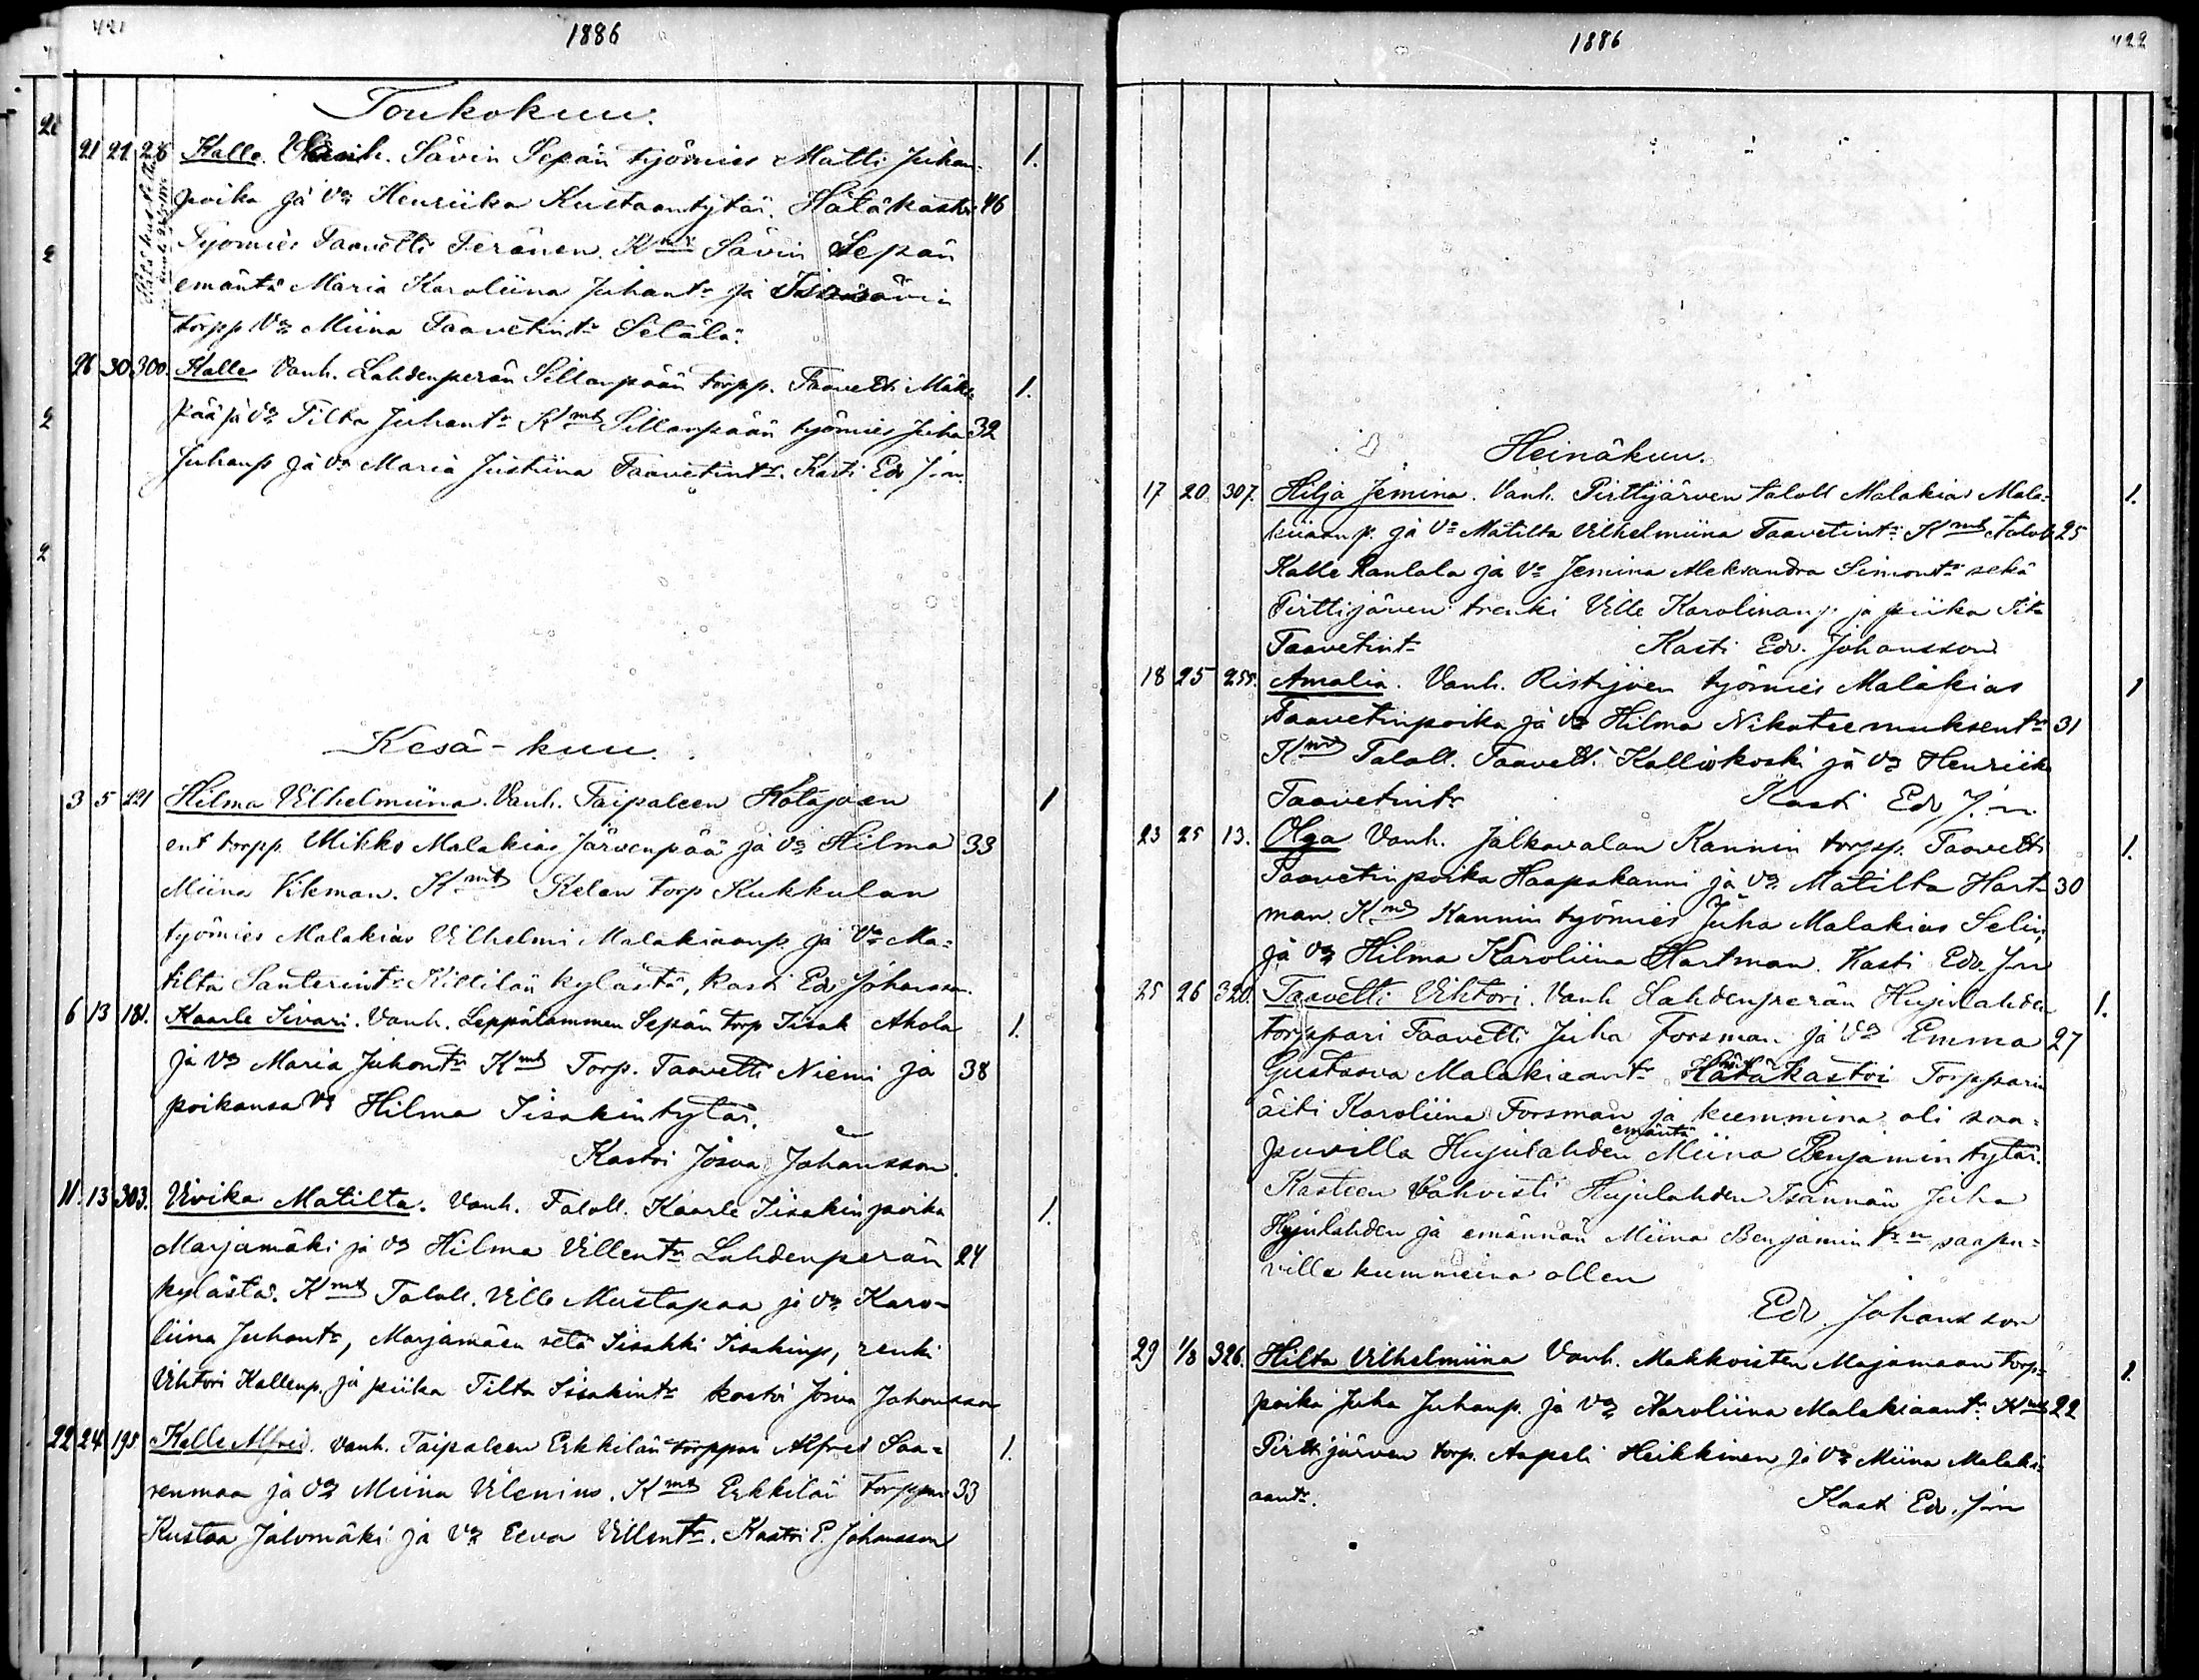 421
1886
Toukokuu.
21 21 28 Kalle. Vanh. Sävin Sepän työmies Matti Juhan- 1.
poika ja Vo Henriika Kustaantytär. Hätäkastoi 46
Työmies Taavetti Teränen. Kmt Sävin Sepän
emäntä Maria Karoliina Juhantr ja
torpp Vo Miina Taavetintr Setälä.
26 30 300. Kalle Vanh. Lahdenperän Sillanpään torpp. Taavetti Mäki- 1.
pää ja Vo Tilta Juhantr Kmt Sillanpään työmies Juha 32
Juhanp ja Vo Maria Justiina Taavetintr. Kasti Edv J:n.
Kesä-kuu.
3 5 221 Hilma Vilhelmiina. Vanh. Taipaleen Kotajoen 1
ent torpp. Mikko Malakias Järvenpää ja Vo Hilma 33
Miina Vikman. Kmt Kelan torp Kukkulan
työmies Malakias Vilhelmi Malakiaanp. ja Vo Ma-
tilta Santerintr Killilän kylästä, Kasti Edv Johansson.
6 13 181. Kaarle Iivari. Vanh. Leppälammen Sepän torp Iisak Ahola 1.
ja Vo Maria Juhontr Kmt Torp. Taavetti Niemi ja 38
poikansa Vo Hilma Iisakintytär.
Kastoi Josua Johansson.
11. 13 303. Vivika Matilta. Vanh. Taloll. Kaarle Iisakinpoika 1.
Marjamäki ja Vo Hilma Villentr Lahdenperän 24
kylästä. Kmt Taloll. Ville Mustapaa ja Vo Karo-
liina Juhantr, Marjamäen setä Iisakki Iisakinp, renki
Vihtori Kallenp. ja piika Tilta Iisakintr kastoi Josua Johansson
22 24 195. Kalle Alfred. Vanh. Taipaleen Erkkilän torppari Alfred Saa- 1.
renmaa ja Vo Miina Vilenius. Kmt Erkkilän torppari 33
Kustaa Jalomäki ja Vo Eeva Villentr. Kastoi E. Johansson
1886
422
Heinäkuu.
17 20 307. Hilja Jemina. Vanh. Pirttijärven taloll Malakias Mala- 1.
kiiaanp. ja Vo Matilta Vilhelmiina Taavetintr Kmt taloll 25
Kalle Raulala ja Vo Jemina Aleksandra Simontr sekä
Pirttijärven renki Ville Karolinanp. ja piika
Taavetintr Kasti Edv. Johansson.
18 25 255. Amalia. Vanh. Ristijoen työmies Malakias 1
Taavetinpoika ja Vo Hilma Nikoteemuksentr 31
Kmt Taloll. Taavetti Kalliokoski ja Vo Henriika
Taavetintr Kasti Edv J:n.
23 25 13. Olga Vanh. Jalkavalan Kannin torpp. Taavetti 1.
Taavetinpoika Haapakanni ja Vo Matilta Hart- 30
man. Kmt Kannin työmies Juha Malakias Selin
ja Vo Hilma Karoliina Hartman. Kasti Edv. J:n
25 26 320. Taavetti Vihtori. Vanh Lahdenperän Hujulahden 1.
torppari Taavetti Juha Forsman ja Vo Emma 27
Gustaava Malakiaantr Hätäkastoi Torpparin
äiti Karoliina Forsman ja kummina oli saa-
puvilla Hujulahden emäntä Miina Benjamintytär.
Kasteen Vahvisti Hujulahden Isännän Juha
Hujulahden ja emännän Miina Benjamin tr:n saapu-
villa kummeina ollen
Edv. Johansson
29 1/8 326. Hilta Vilhelmiina Vanh. Makkoisten Majamaan torp- 1.
poika Juha Juhanp. ja Vo Karoliina Malakiaantr. Kmt 22
Pirttijärven torp. Aapeli Heikkinen ja Vo Miina Malaki-
aantr. Kasti Edv. J:n